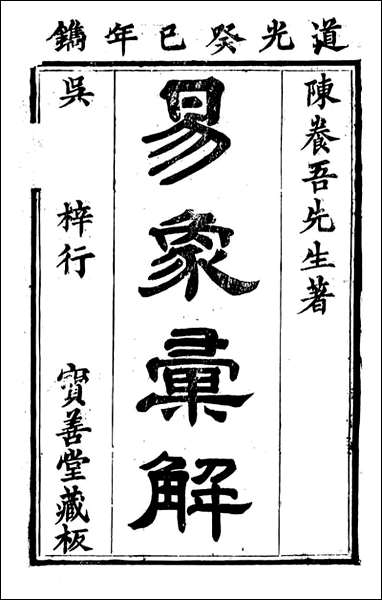 道光癸巳年鐫
陳養吾先生著
易象彙解
吳　梓行
寶善堂藏板